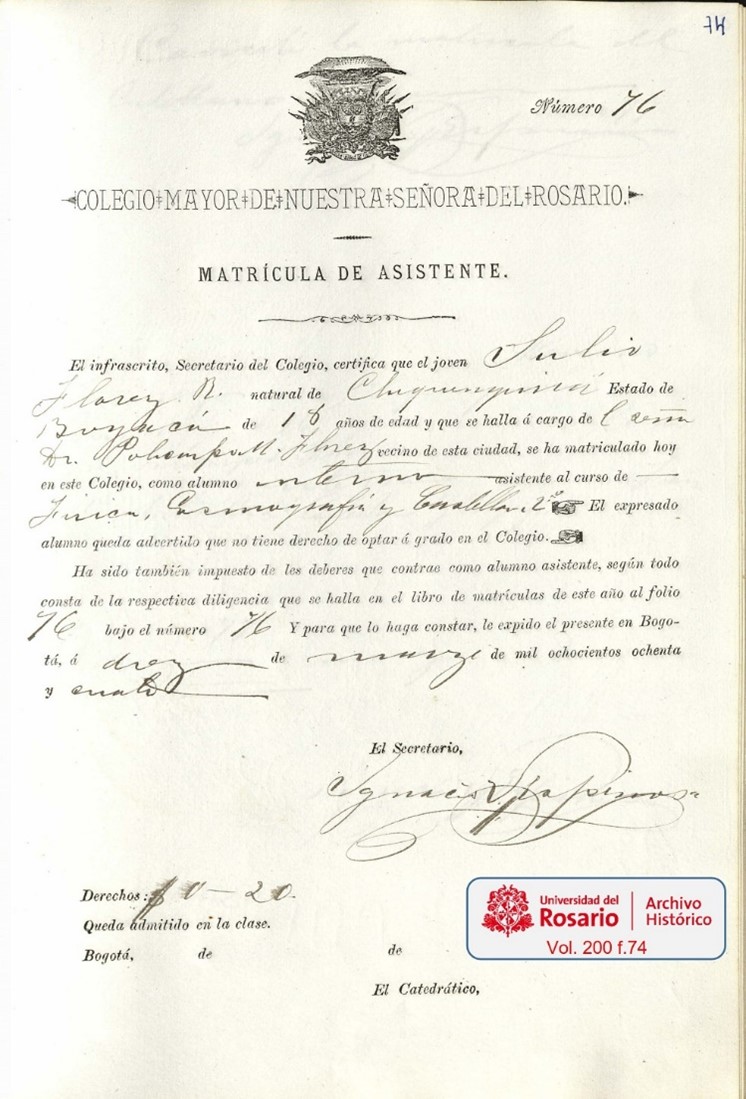 74
Número 76
COLEGIO MAYOR DE NUESTRA SEÑORA DEL ROSARIO.
MATRÍCULA DE ASISTENTE.
El infrascrito, Secretario del Colegio, certifica que el joven Julio
Florez R. natural de Chiquinquirá Estado de
Boyacá de 18 años de edad y que se halla á cargo de l señr
Dr. Policarpo M. Florez vecino de esta ciudad, se ha matriculado hoy
en este Colegio, como alumno interno asistente al curso de
Física, Cosmografía y Castellano 2º El expresado
alumno queda advertido que no tiene derecho de optar á grado en el Colegio.
Ha sido también impuesto de les deberes que contrae como alumno asistente, según todo
consta de la respectiva diligencia que se halla en el libro de matrículas de este año al folio
76 bajo el número 76 Y para que lo haga constar, le expido el presente en Bogo-
tá, á diez de marzo de mil ochocientos ochenta
y cuatro
El Secretario,
Ignacio Espinosa
Derechos: $0-20.
Queda admitido en la clase.
Bogotá, de de
El Catedrático,
Universidad del
Rosario
Archivo
Histórico
Vol. 200 f.74